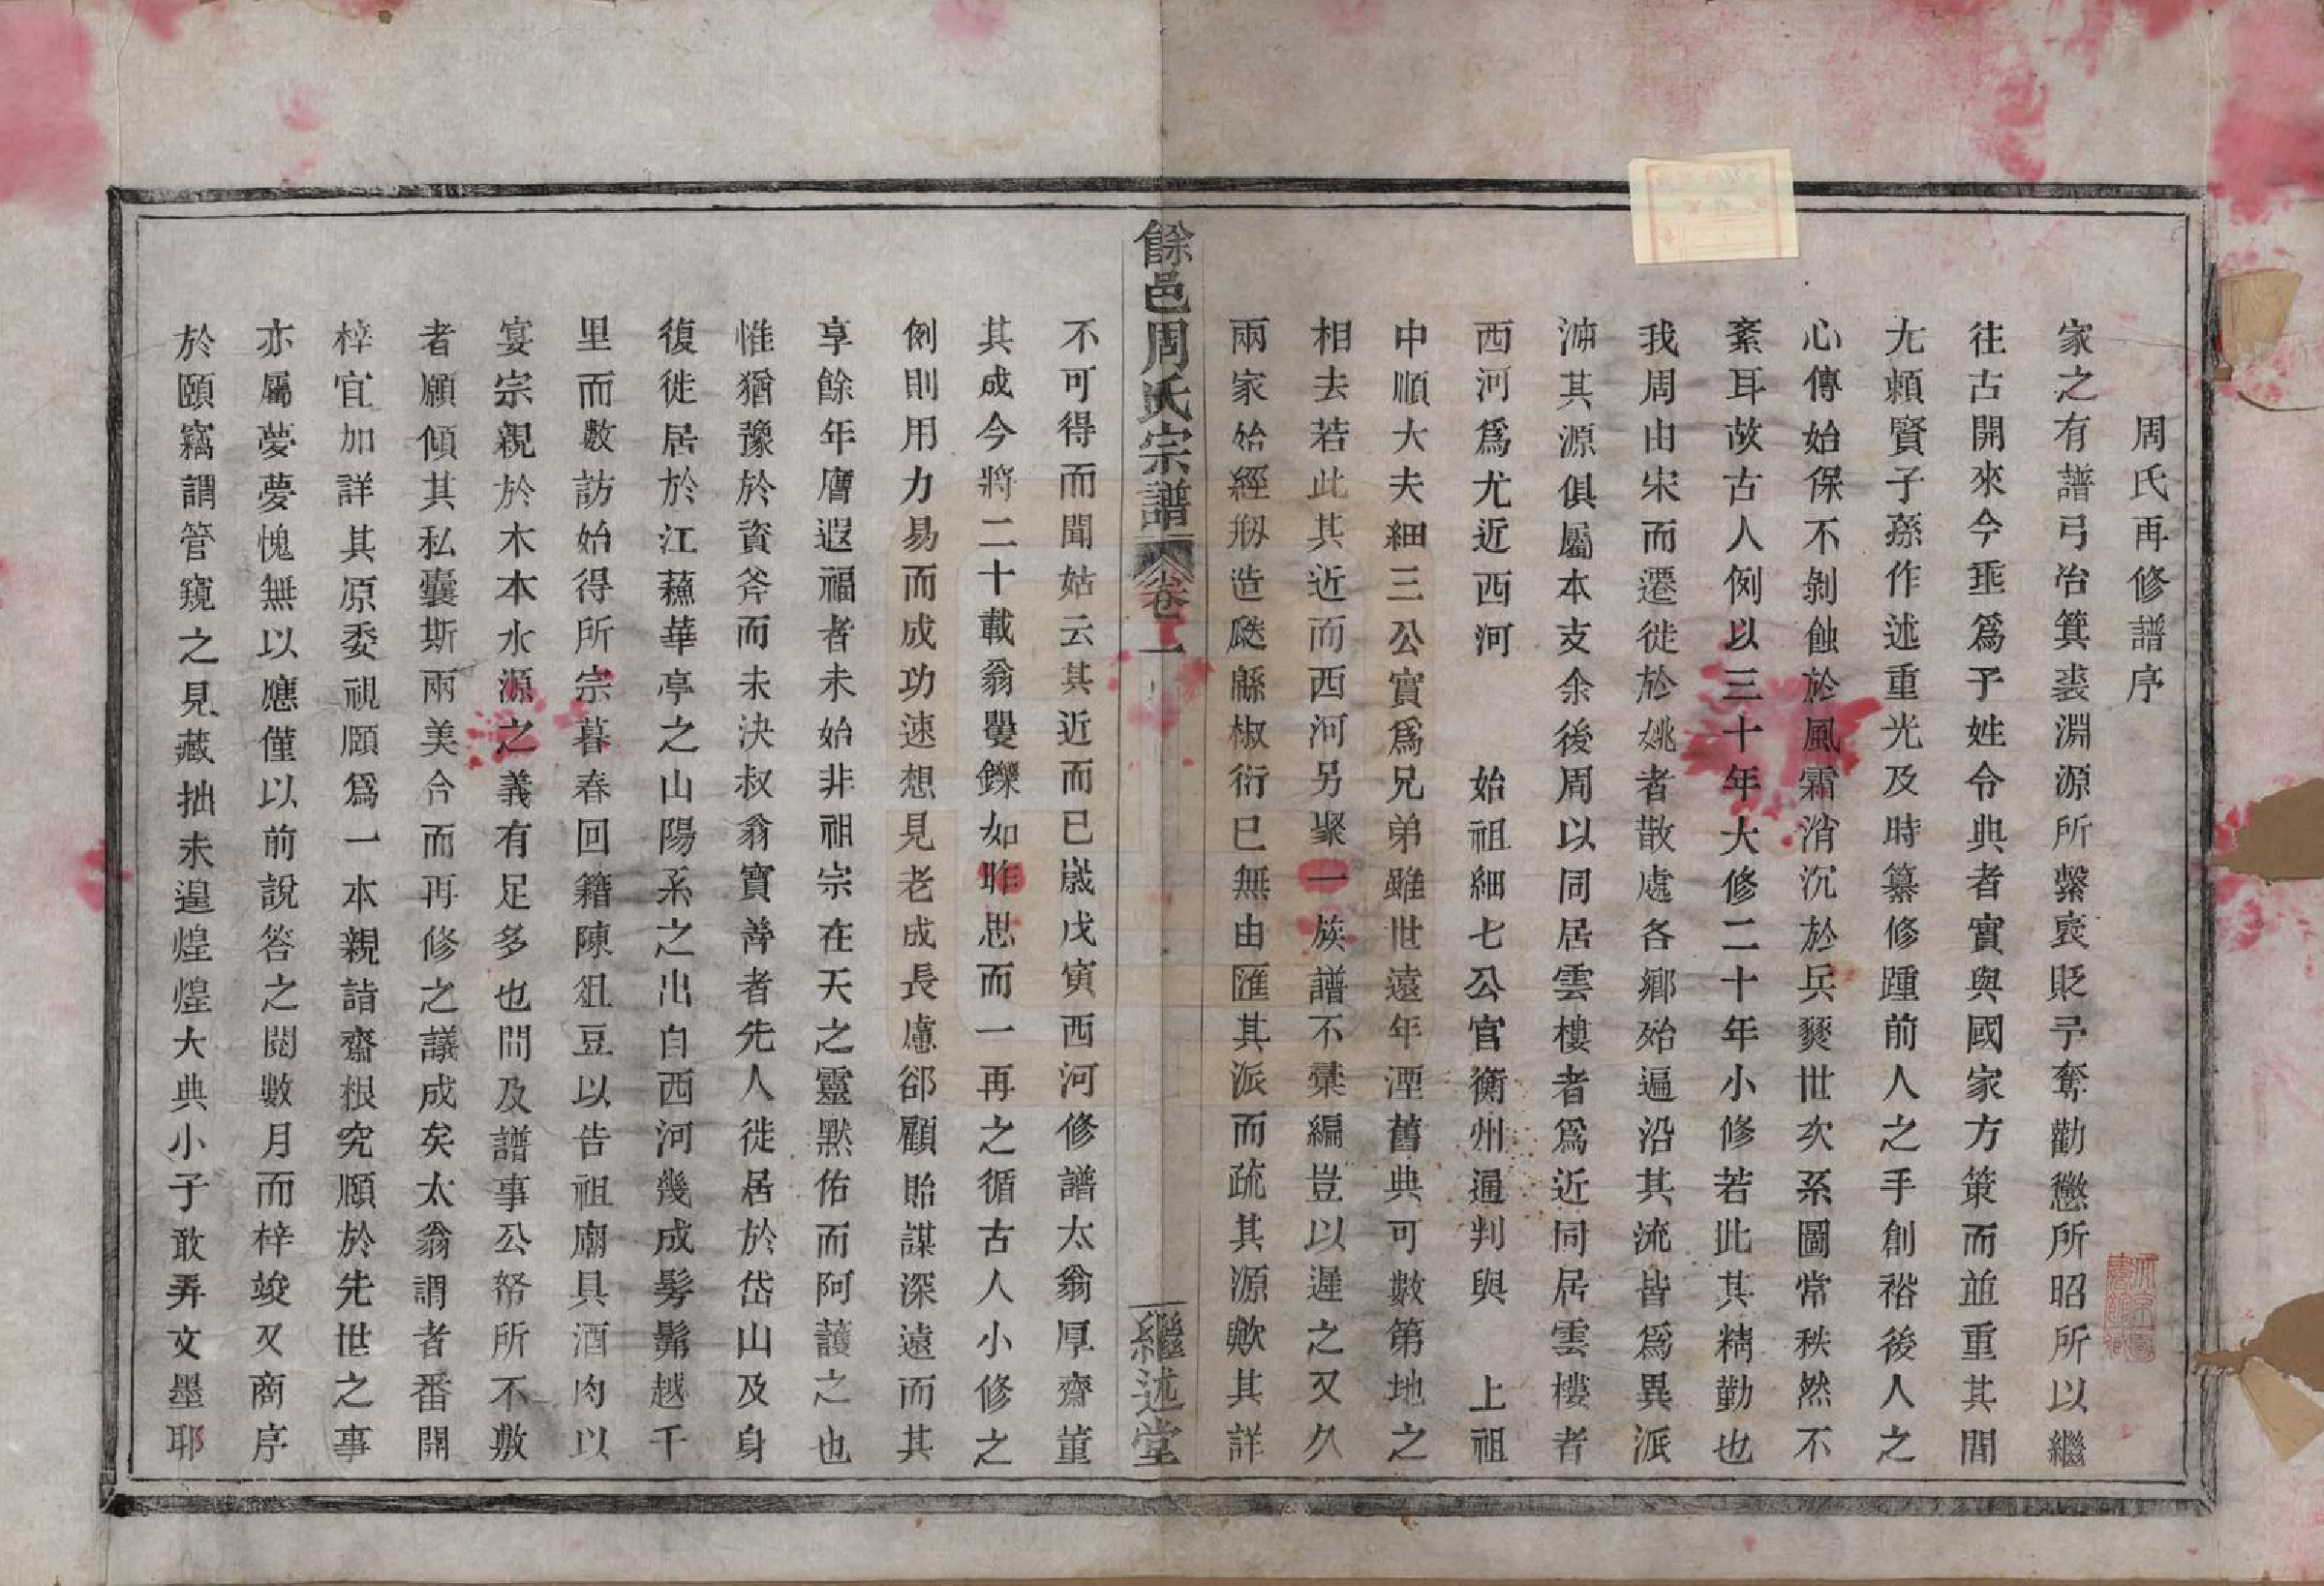 周氏再修譜序
家之有譜弓冶箕裘淵源所繫褒貶予奪勸懲所昭所以繼
往古開來今垂爲子姓令典者實與國家方策而並重其間
尢賴賢子孫作述重光及時纂修踵前人之手創裕後人之
心傳始保不剝蝕於風霜消沉於兵燹世次系圖常秩然不
紊耳故古人例以三十年大修二十年小修若此其精勤也
我周由宋而遷徙於姚者散處各鄉殆遍沿其流皆爲異派
溯其源俱屬本支余後周以同居雲樓者爲近同居雲樓者
西河爲尤近西河 始祖細七公官衡州通判與 上祖
中順大夫細三公實爲兄弟雖世遠年湮舊典可數第地之
相去若此其近而西河另聚一族譜不彙編豈以遲之又久
兩家始經剏造颷緜椒衍已無由匯其派而疏其源歟其詳
餘邑周氏宗譜 卷一 繼述堂
不可得而聞姑云其近而已歲戊寅西河修譜太翁厚齋董
其成今將二十載翁矍鑠如昨思而一再之循古人小修之
例則用力易而成功速想見老成長慮郤顧貽謀深遠而其
享餘年膺遐福者未始非祖宗在天之靈默佑而阿護之也
惟猶豫於資斧而未決叔翁寶善者先人徙居於岱山及身
復徙居於江蘓華亭之山陽系之出自西河幾成髣髴越千
里而數訪始得所宗暮春回籍陳俎豆以告祖廟具酒肉以
宴宗親於木本水源之義有足多也問及譜事公帑所不敷
者願傾其私囊斯兩美合而再修之議成矣太翁謂者番開
梓宜加詳其原委視願爲一本親詣齋根究願於先世之事
亦屬夢夢愧無以應僅以前說答之閱數月而梓竣又商序
於頤竊謂管窺之見藏拙未遑煌煌大典小子敢弄文墨耶